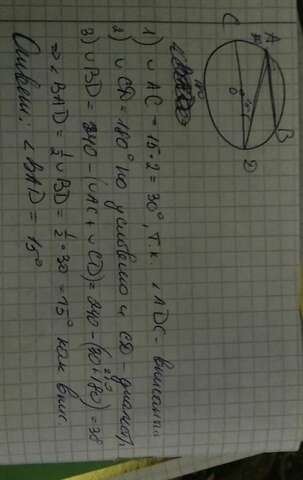 C
A
B
O
D
180°
1) ∪AC = 15·2 = 30°, т.к. ∠ADC - вписанный
2) ∪CD = 180° по условию и CD - диаметр
3) ∪BD = 240 - (∪AC + ∪CD) = 240 - (30 + 180) = 30
⇒ ∠BAD = ½ ∪BD = ½ · 30 = 15° как впис.
Ответ: ∠BAD = 15°